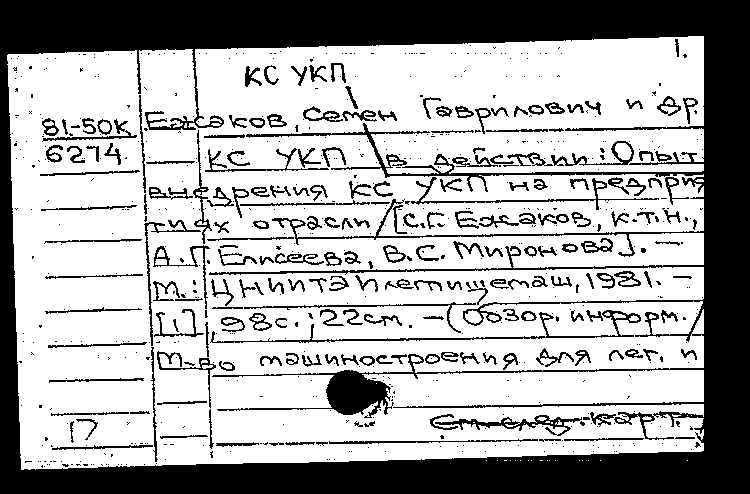 1.
КС УКП
81-50К Бажаков, Семен Гаврилович и др.
6274 КС УКП в действии: Опыт
внедрения КС УКП на предприя
тиях отрасли / [С.Г. Бажаков, к.т.н.,
А.Г. Елисеева, В.С. Миронова]. —
М.: ЦНИИТЭИлегпищемаш, 1981. —
[1], 98с.; 22см. — (Обзор. информ. /
М-во машиностроения для лег. и
П См. след. карт.